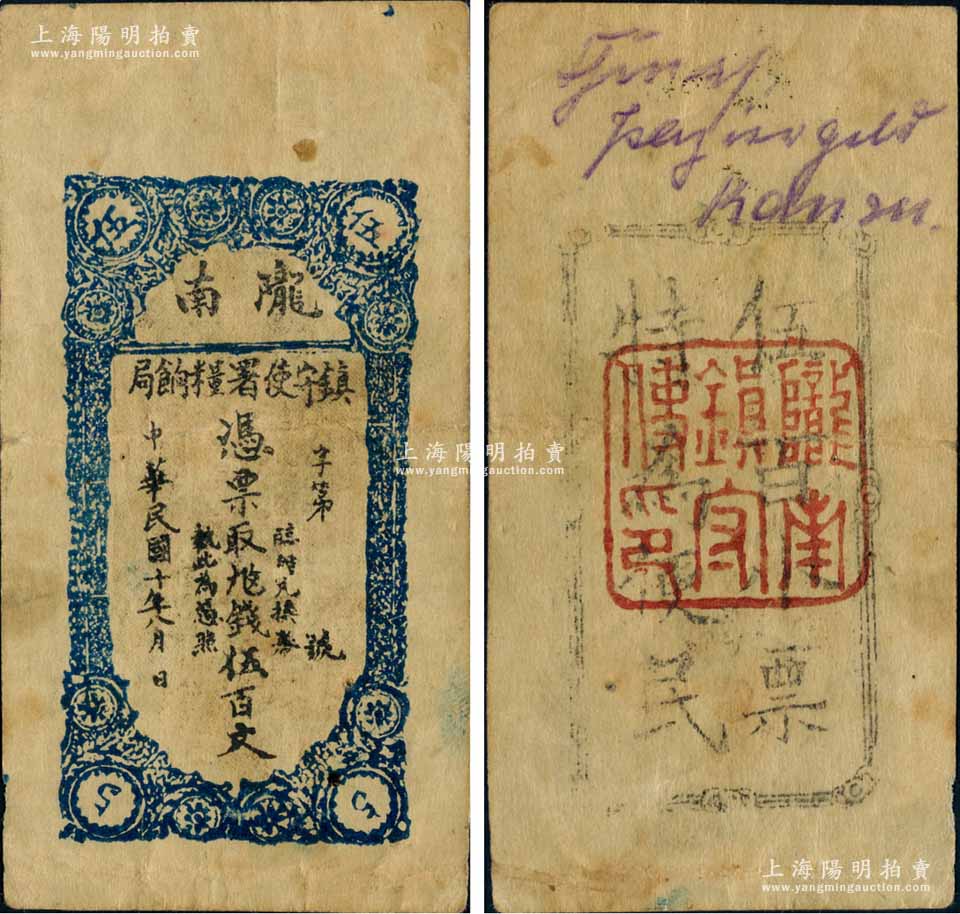 上海陽明拍賣
www.yangmingauction.com
伍
伍
隴南
鎮守使署糧餉局
字第
號
臨時兌換券
憑票取兌錢伍百文
執此為憑照
中華民國十年八月 日
5
5
papiergeld
Kansu.
伍百
票
特
為
便
民
隴南
鎮守
使印
上海陽明拍賣
www.yangmingauction.com
上海陽明拍賣
www.yangmingauction.com